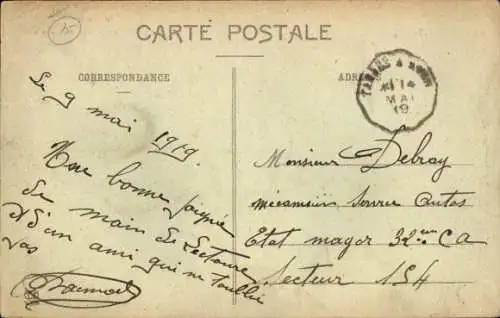 CARTE POSTALE
CORRESPONDANCE
Le 9 mai
1919.
Une bonne poignée
de main de Lectoure
et d'un ami qui ne t'oublie
pas
ADRE
TARBES A
MAI
19
Monsieur Debray
mécanicien Service Autos
Etat major 32eme CA
Secteur 154